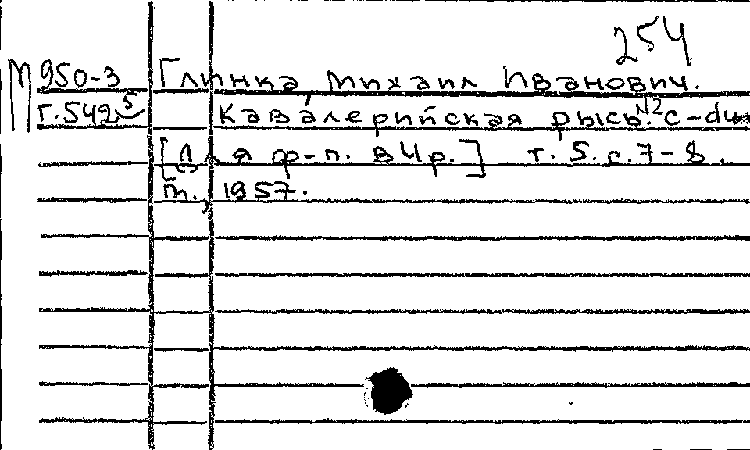 254
М 950-3 Глинка, Михаил Иванович.
Г.542 5 Кавалерийская рысь. №2 C-dur
[Для ф-п. в 4 р.] т. 5. с. 7-8.
М., 1957.